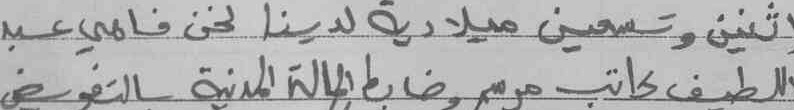 اثنين وتسعين ميلادية لدينا نحن فاهي عبد
اللطيف كاتب مرسم وضابط الحالة المدنية بالتفويض